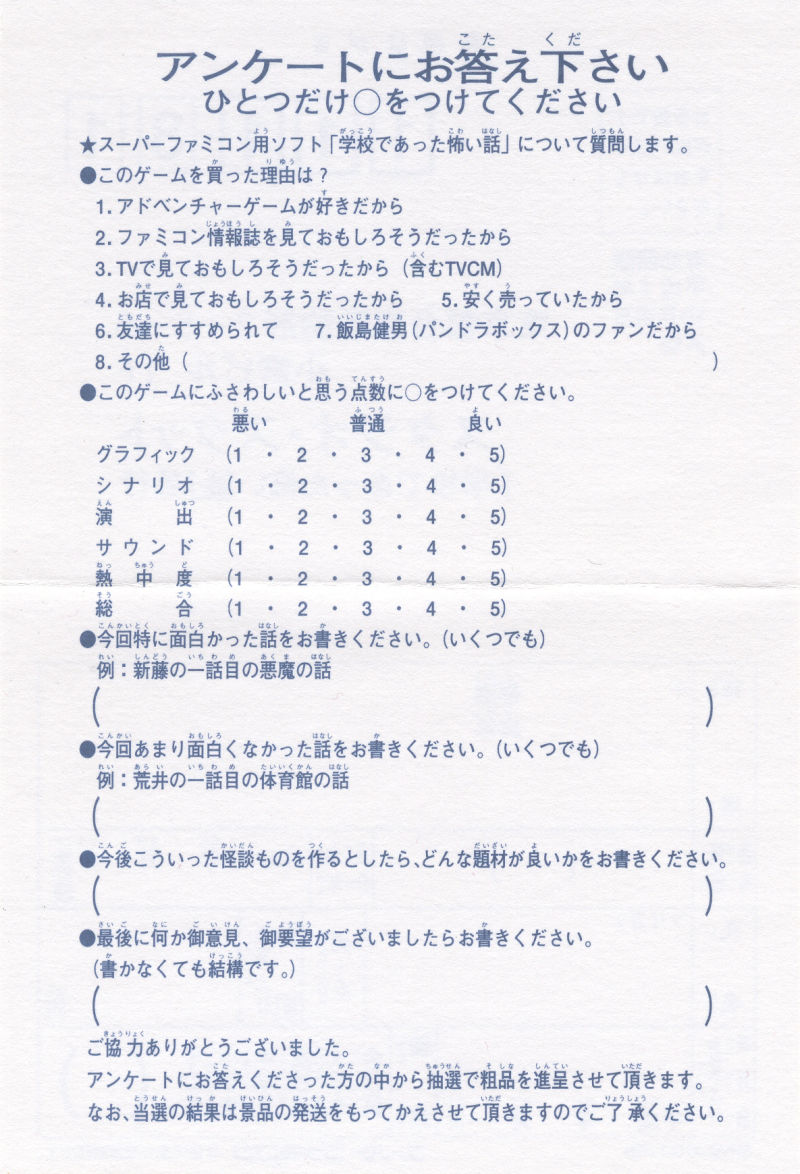 アンケートにお答え下さい
ひとつだけ○をつけてください
★スーパーファミコン用ソフト「学校であった怖い話」について質問します。
●このゲームを買った理由は?
1. アドベンチャーゲームが好きだから
2. ファミコン情報誌を見ておもしろそうだったから
3. TVで見ておもしろそうだったから（含むTVCM）
4. お店で見ておもしろそうだったから 5. 安く売っていたから
6. 友達にすすめられて 7. 飯島健男（パンドラボックス）のファンだから
8. その他（ ）
●このゲームにふさわしいと思う点数に○をつけてください。
悪い 普通 良い
グラフィック （1 ・ 2 ・ 3 ・ 4 ・ 5）
シナリオ （1 ・ 2 ・ 3 ・ 4 ・ 5）
演出 （1 ・ 2 ・ 3 ・ 4 ・ 5）
サウンド （1 ・ 2 ・ 3 ・ 4 ・ 5）
熱中度 （1 ・ 2 ・ 3 ・ 4 ・ 5）
総合 （1 ・ 2 ・ 3 ・ 4 ・ 5）
●今回特に面白かった話をお書きください。（いくつでも）
例：新藤の一話目の悪魔の話
（ ）
●今回あまり面白くなかった話をお書きください。（いくつでも）
例：荒井の一話目の体育館の話
（ ）
●今後こういった怪談ものを作るとしたら、どんな題材が良いかをお書きください。
（ ）
●最後に何か御意見、御要望がございましたらお書きください。
（書かなくても結構です。）
（ ）
ご協力ありがとうございました。
アンケートにお答えくださった方の中から抽選で粗品を進呈させて頂きます。
なお、当選の結果は景品の発送をもってかえさせて頂きますのでご了承ください。